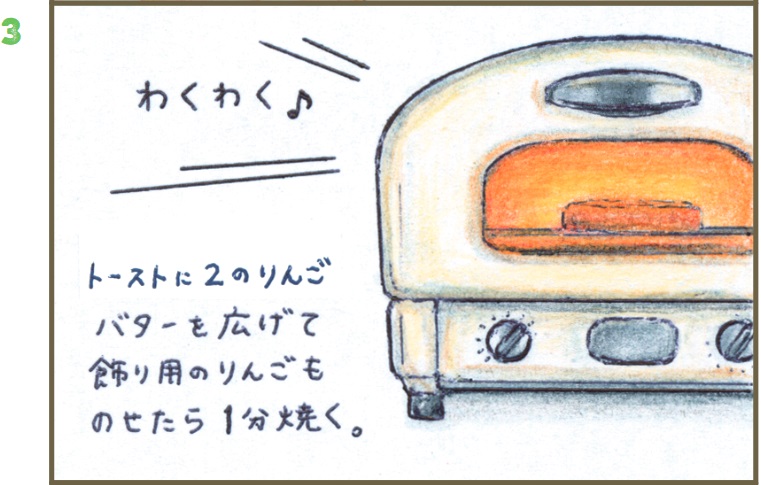 3
わくわく♪
トーストに2のりんご
バターを広げて
飾り用のりんごも
のせたら1分焼く。